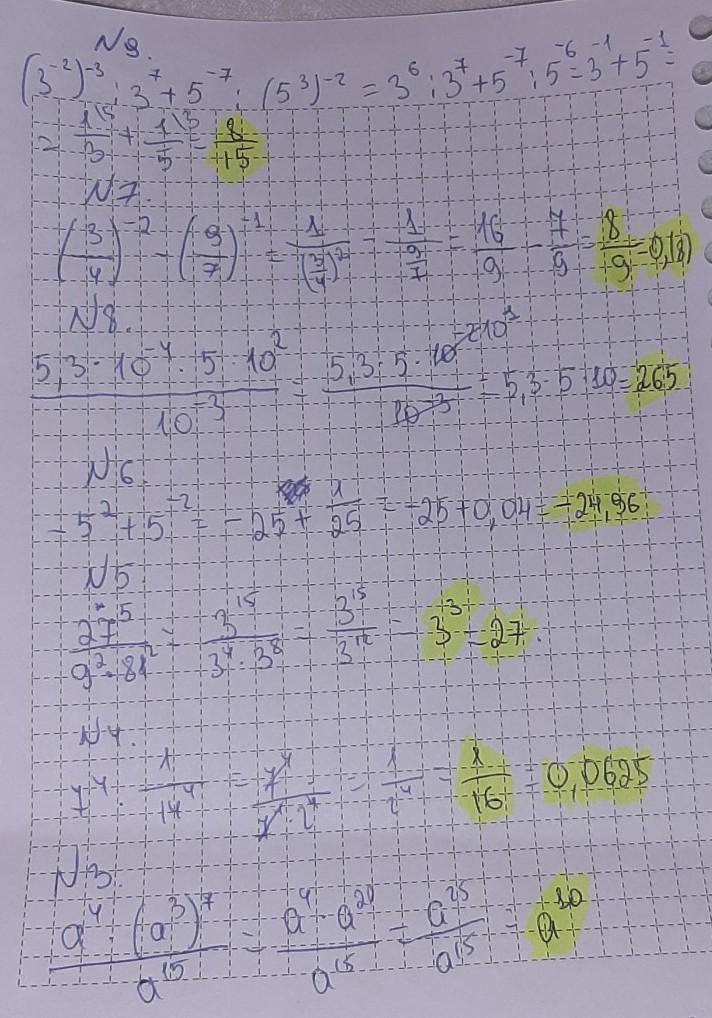 N9.
(3⁻²)⁻³ : 3⁷ + 5⁻⁷ : (5³)⁻² = 3⁶ : 3⁷ + 5⁻⁷ : 5⁻⁶ = 3⁻¹ + 5⁻¹ =
= 1\5/3 + 1\3/5 = 8/15
N7.
(3/4)⁻² - (9/7)⁻¹ = 1/(3/4)² - 1/(9/7) = 16/9 - 7/9 = 8/9 = 0,(8)
N8.
5,3 · 10⁻⁴ · 5 · 10²/10⁻³ = 5,3 · 5 · 10⁻² 10¹/10⁻³ = 5,3 · 5 · 10 = 265
N6.
-5² + 5⁻² = -25 + 1/25 = -25 + 0,04 = -24,96
N5
27⁵/9² · 81² = 3¹⁵/3⁴ · 3⁸ = 3¹⁵/3¹² = 3³ = 27.
N4.
7⁴ · 1/14⁴ = 7⁴/7⁴ · 2⁴ = 1/2⁴ = 1/16 = 0,0625
N3.
a⁴ · (a³)⁷/a¹⁵ = a⁴ · a²¹/a¹⁵ = a²⁵/a¹⁵ = a¹⁰